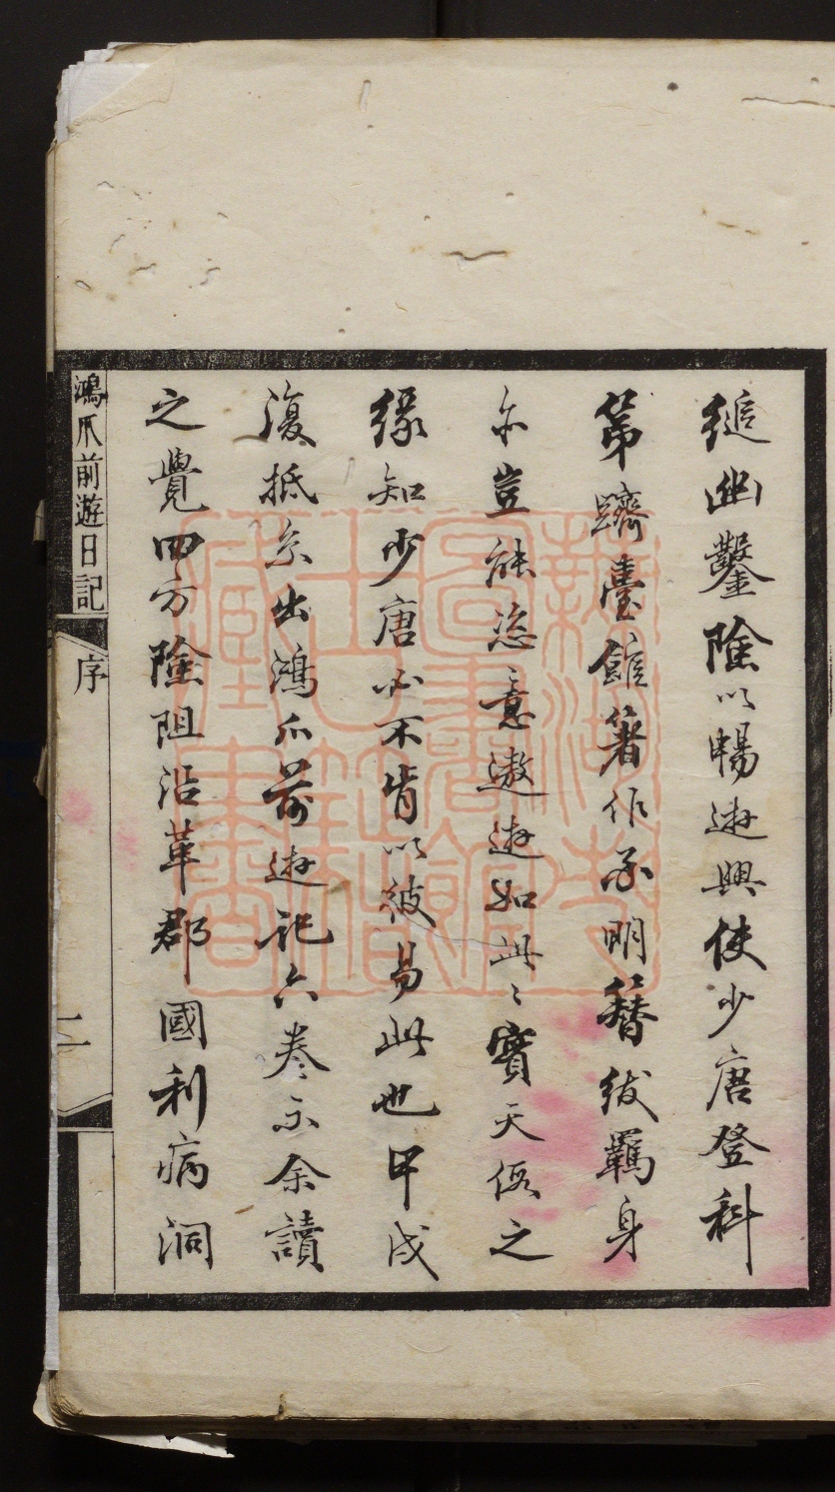 縋幽鑿險以暢遊興使少唐登科
第躋臺館著作承明簪紱羈身
亦豈能恣意遨遊如此此實天假之
緣知少唐必不肯以彼易此也甲戌
復抵京出鴻爪前遊記六卷示余讀
之覺四方險阻沿革郡國利病洞
鴻爪前遊日記
序
二